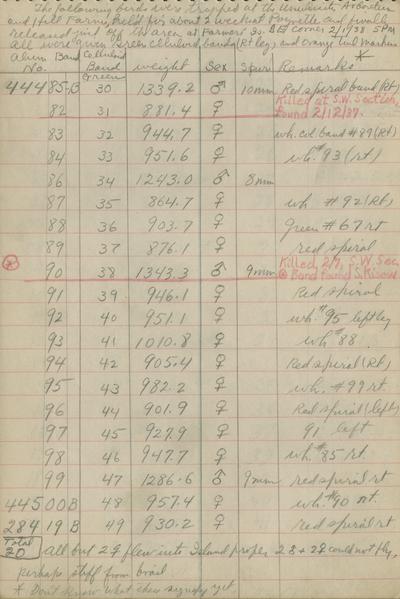 The following birds were trapped at the University Arboretum
and Hill Farm, held for about 2 weeks at Poynette and finally
released just off the area at Farmers So. BE corner 2/1/38 5PM
All were given green celluloid bands (Rt leg) and orange tail markers
Alum Band No. Celluloid Band Green weight Sex Spurs Remarks *
44485-B 30 1339.2 ♂ 10mm Red spiral band (Rt)
82 31 881.4 ♀ Killed at S.W. Section, found 2/12/37.
83 32 944.7 ♀ wh. col band #89 (Rt)
84 33 951.6 ♀ wh. #93 (rt)
86 34 1243.0 ♂ 8mm
87 35 864.7 ♀ wh #92 (Rt)
88 36 903.7 ♀ Green #67 rt
89 37 876.1 ♀ red spiral
90 38 1343.3 ♂ 9mm Killed, 2/7, S.W. Sec. Band found S.
91 39 946.1 ♀ Red spiral
92 40 951.1 ♀ wh. #95 left leg
93 41 1010.8 ♀ wh #88
94 42 905.4 ♀ Red spiral (Rt)
95 43 982.2 ♀ wh. #99 rt
96 44 901.9 ♀ Red spiral (left)
97 45 927.9 ♀ 91 left
98 46 947.7 ♀ wh #85 rt.
99 47 1286.6 ♂ 9mm red spiral rt
44500B 48 957.4 ♀ wh. #90 rt.
28419B 49 930.2 ♀ red spiral rt
Total 20 all but 2♀ flew into Island proper 2♂+2♀ could not fly,
perhaps stiff from
* Don't know what these signify yet